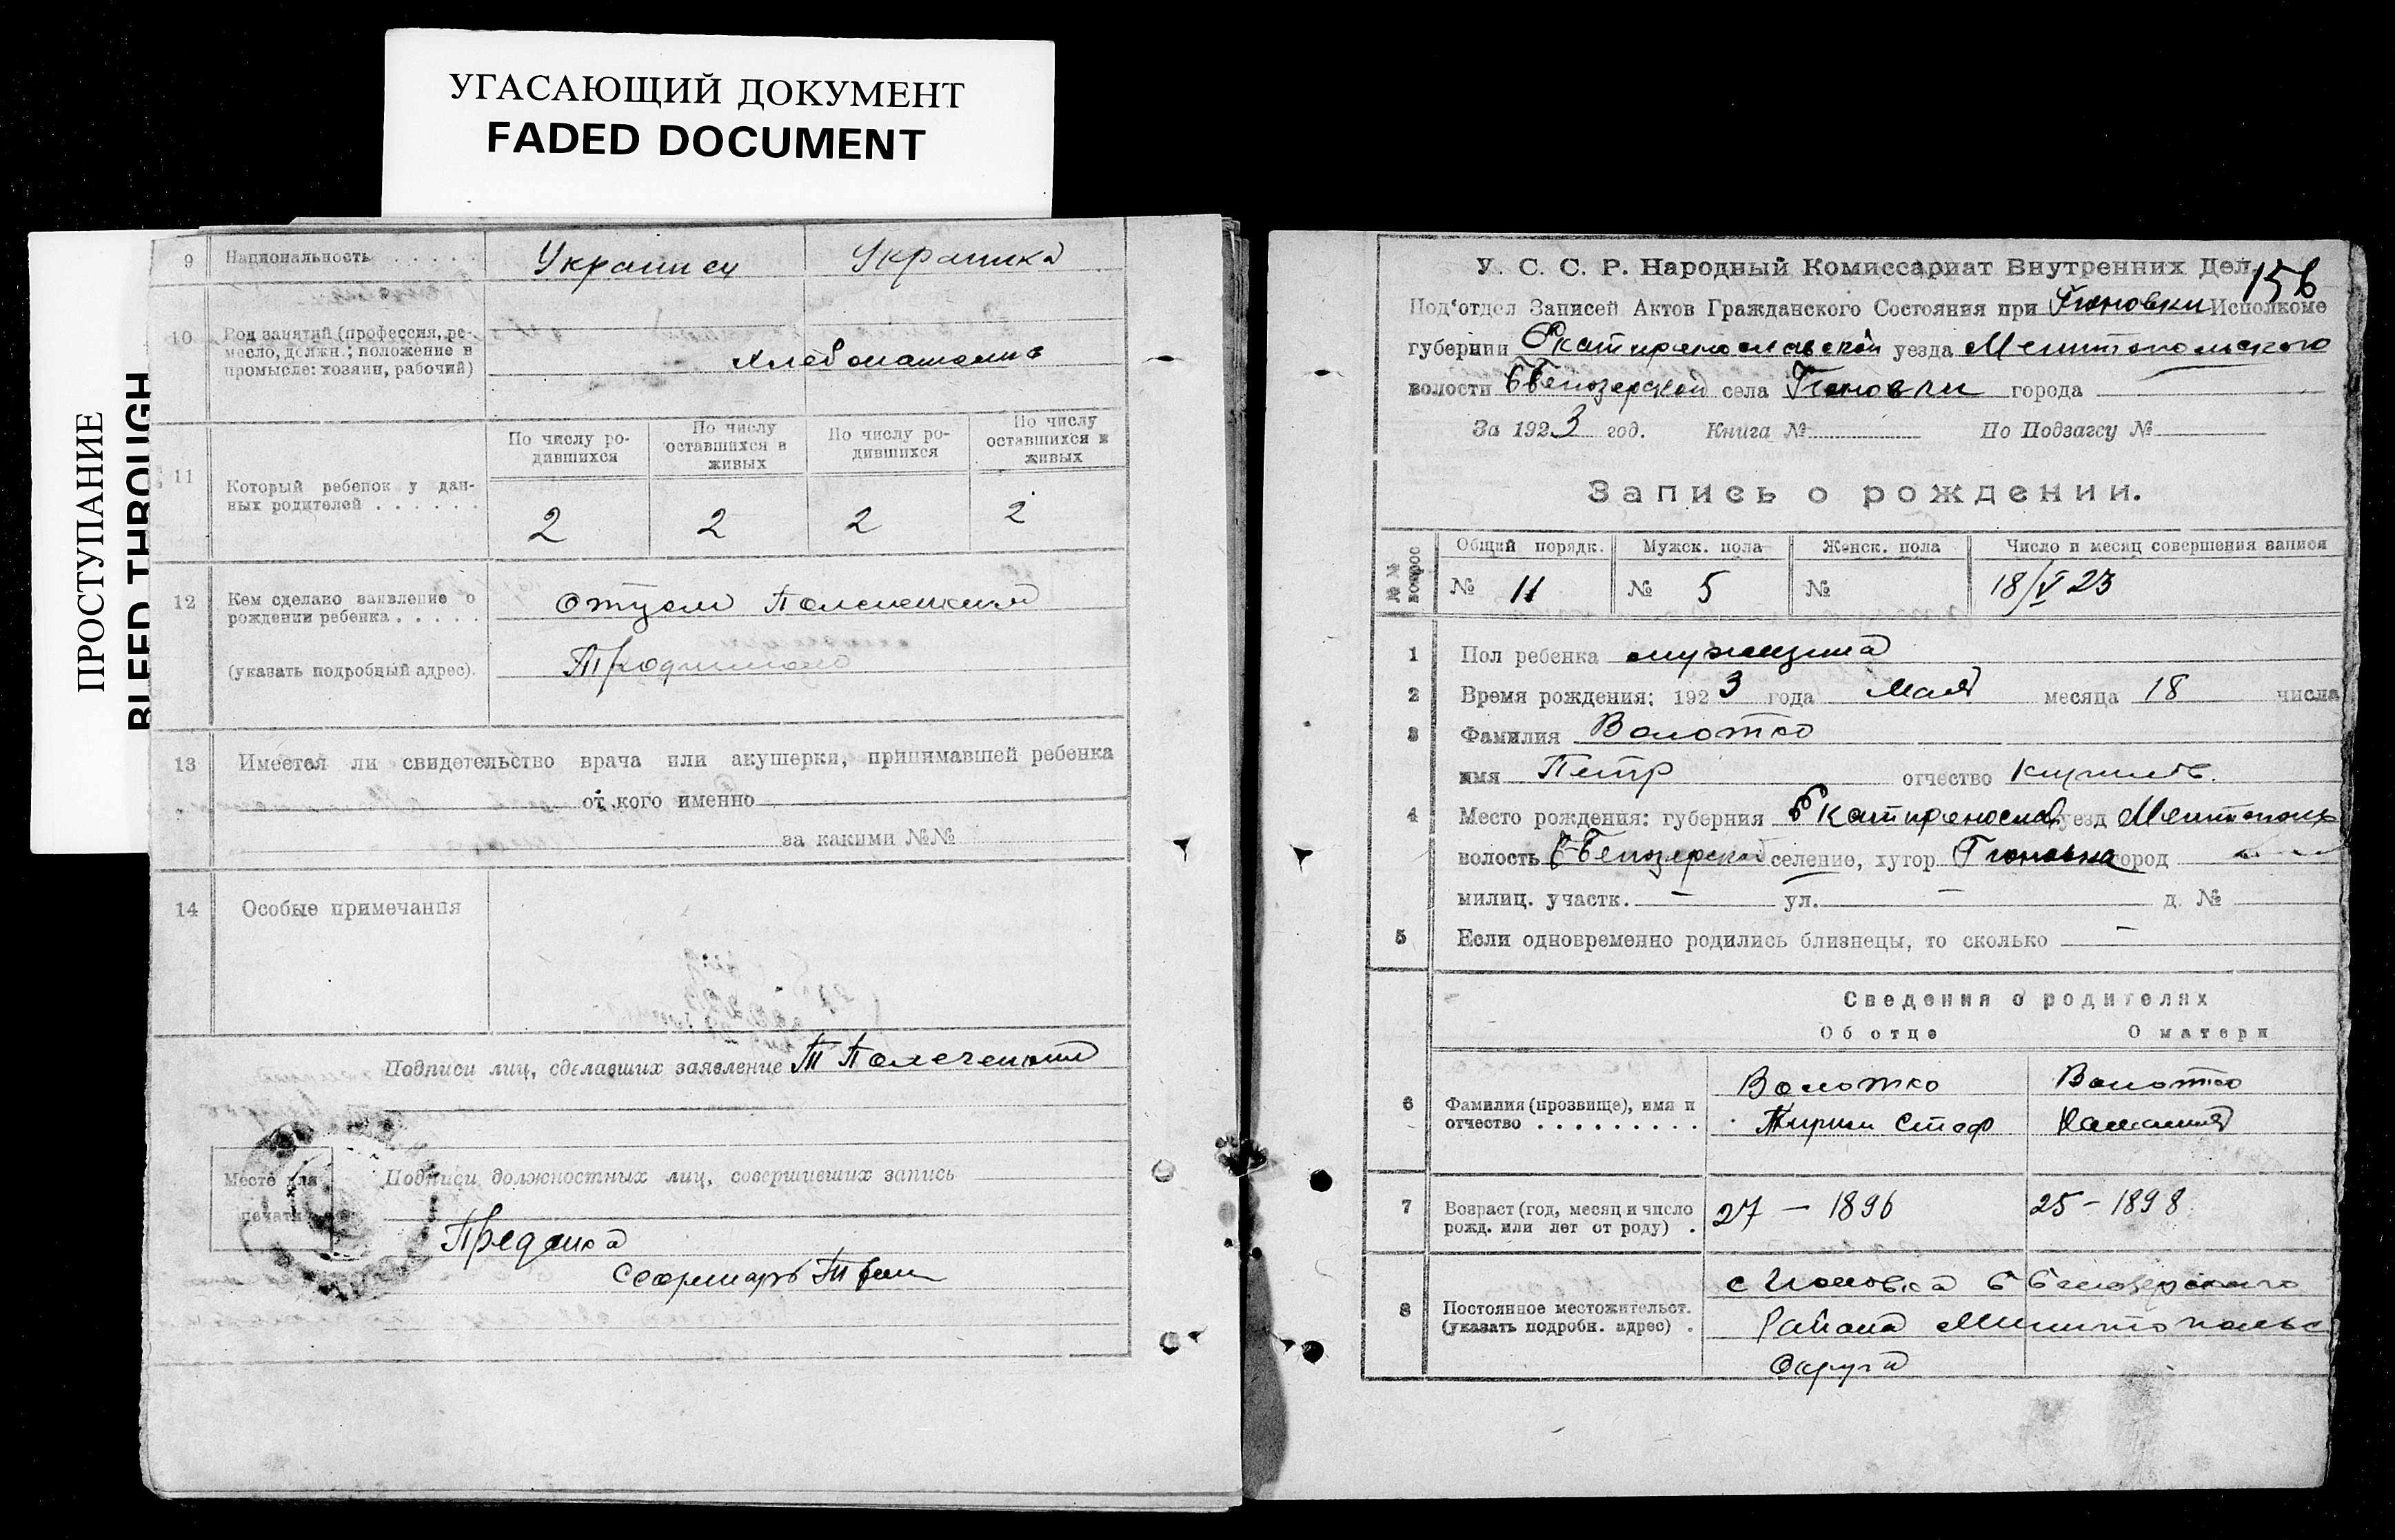 УГАСАЮЩИЙ ДОКУМЕНТ
FADED DOCUMENT
ПРОСТУПАНИЕ
BLEED THROUGH
9 Национальность Украинец Украинка
10 Род занятий (профессия, ре-
месло, должн.; положение в
промысле: хозяин, рабочий)
11 Который ребенок у дан-
ных родителей
По числу ро-
дившихся
По числу
оставшихся в
живых
По числу ро-
дившихся
По числу
оставшихся в
живых
2 2 2 2
12 Кем сделано заявление о
рождении ребенка
(указать подробный адрес).
Отцом
13 Имеется ли свидетельство врача или акушерки, принимавшей ребенка
от кого именно
за какими №№
14 Особые примечания
Подписи лиц, сделавших заявление
Место для
печати
Подписи должностных лиц, совершивших запись
Секретарь
156
У. С. С. Р. Народный Комиссариат Внутренних Дел.
Под'отдел Записей Актов Гражданского Состояния при Исполкоме
губернии Екатиринославской уезда Мелитопольского
волости села города
За 1923 год. Книга № По Подзагсу №
Запись о рождении.
№№ вопрос
Общий порядк. Мужск. пола Женск. пола Число и месяц совершения записи
№ 11 № 5 № 18/V 23
1 Пол ребенка мужщина
2 Время рождения: 1923 года Мая месяца 18 числа
3 Фамилия Волотко
имя Петр отчество
4 Место рождения: губерния Екатиринослав уезд Мелитополь
волость селение, хутор город
милиц. участк. — ул. — д. №
5 Если одновременно родились близнецы, то сколько —
Сведения о родителях
Об отце О матери
6 Фамилия (прозвище), имя и
отчество
Волотко Волотко
Стеф
7 Возраст (год, месяц и число
рожд. или лет от роду)
27 — 1896 25 – 1898
8 Постоянное местожительст.
(указать подробн. адрес)
Района
Округа